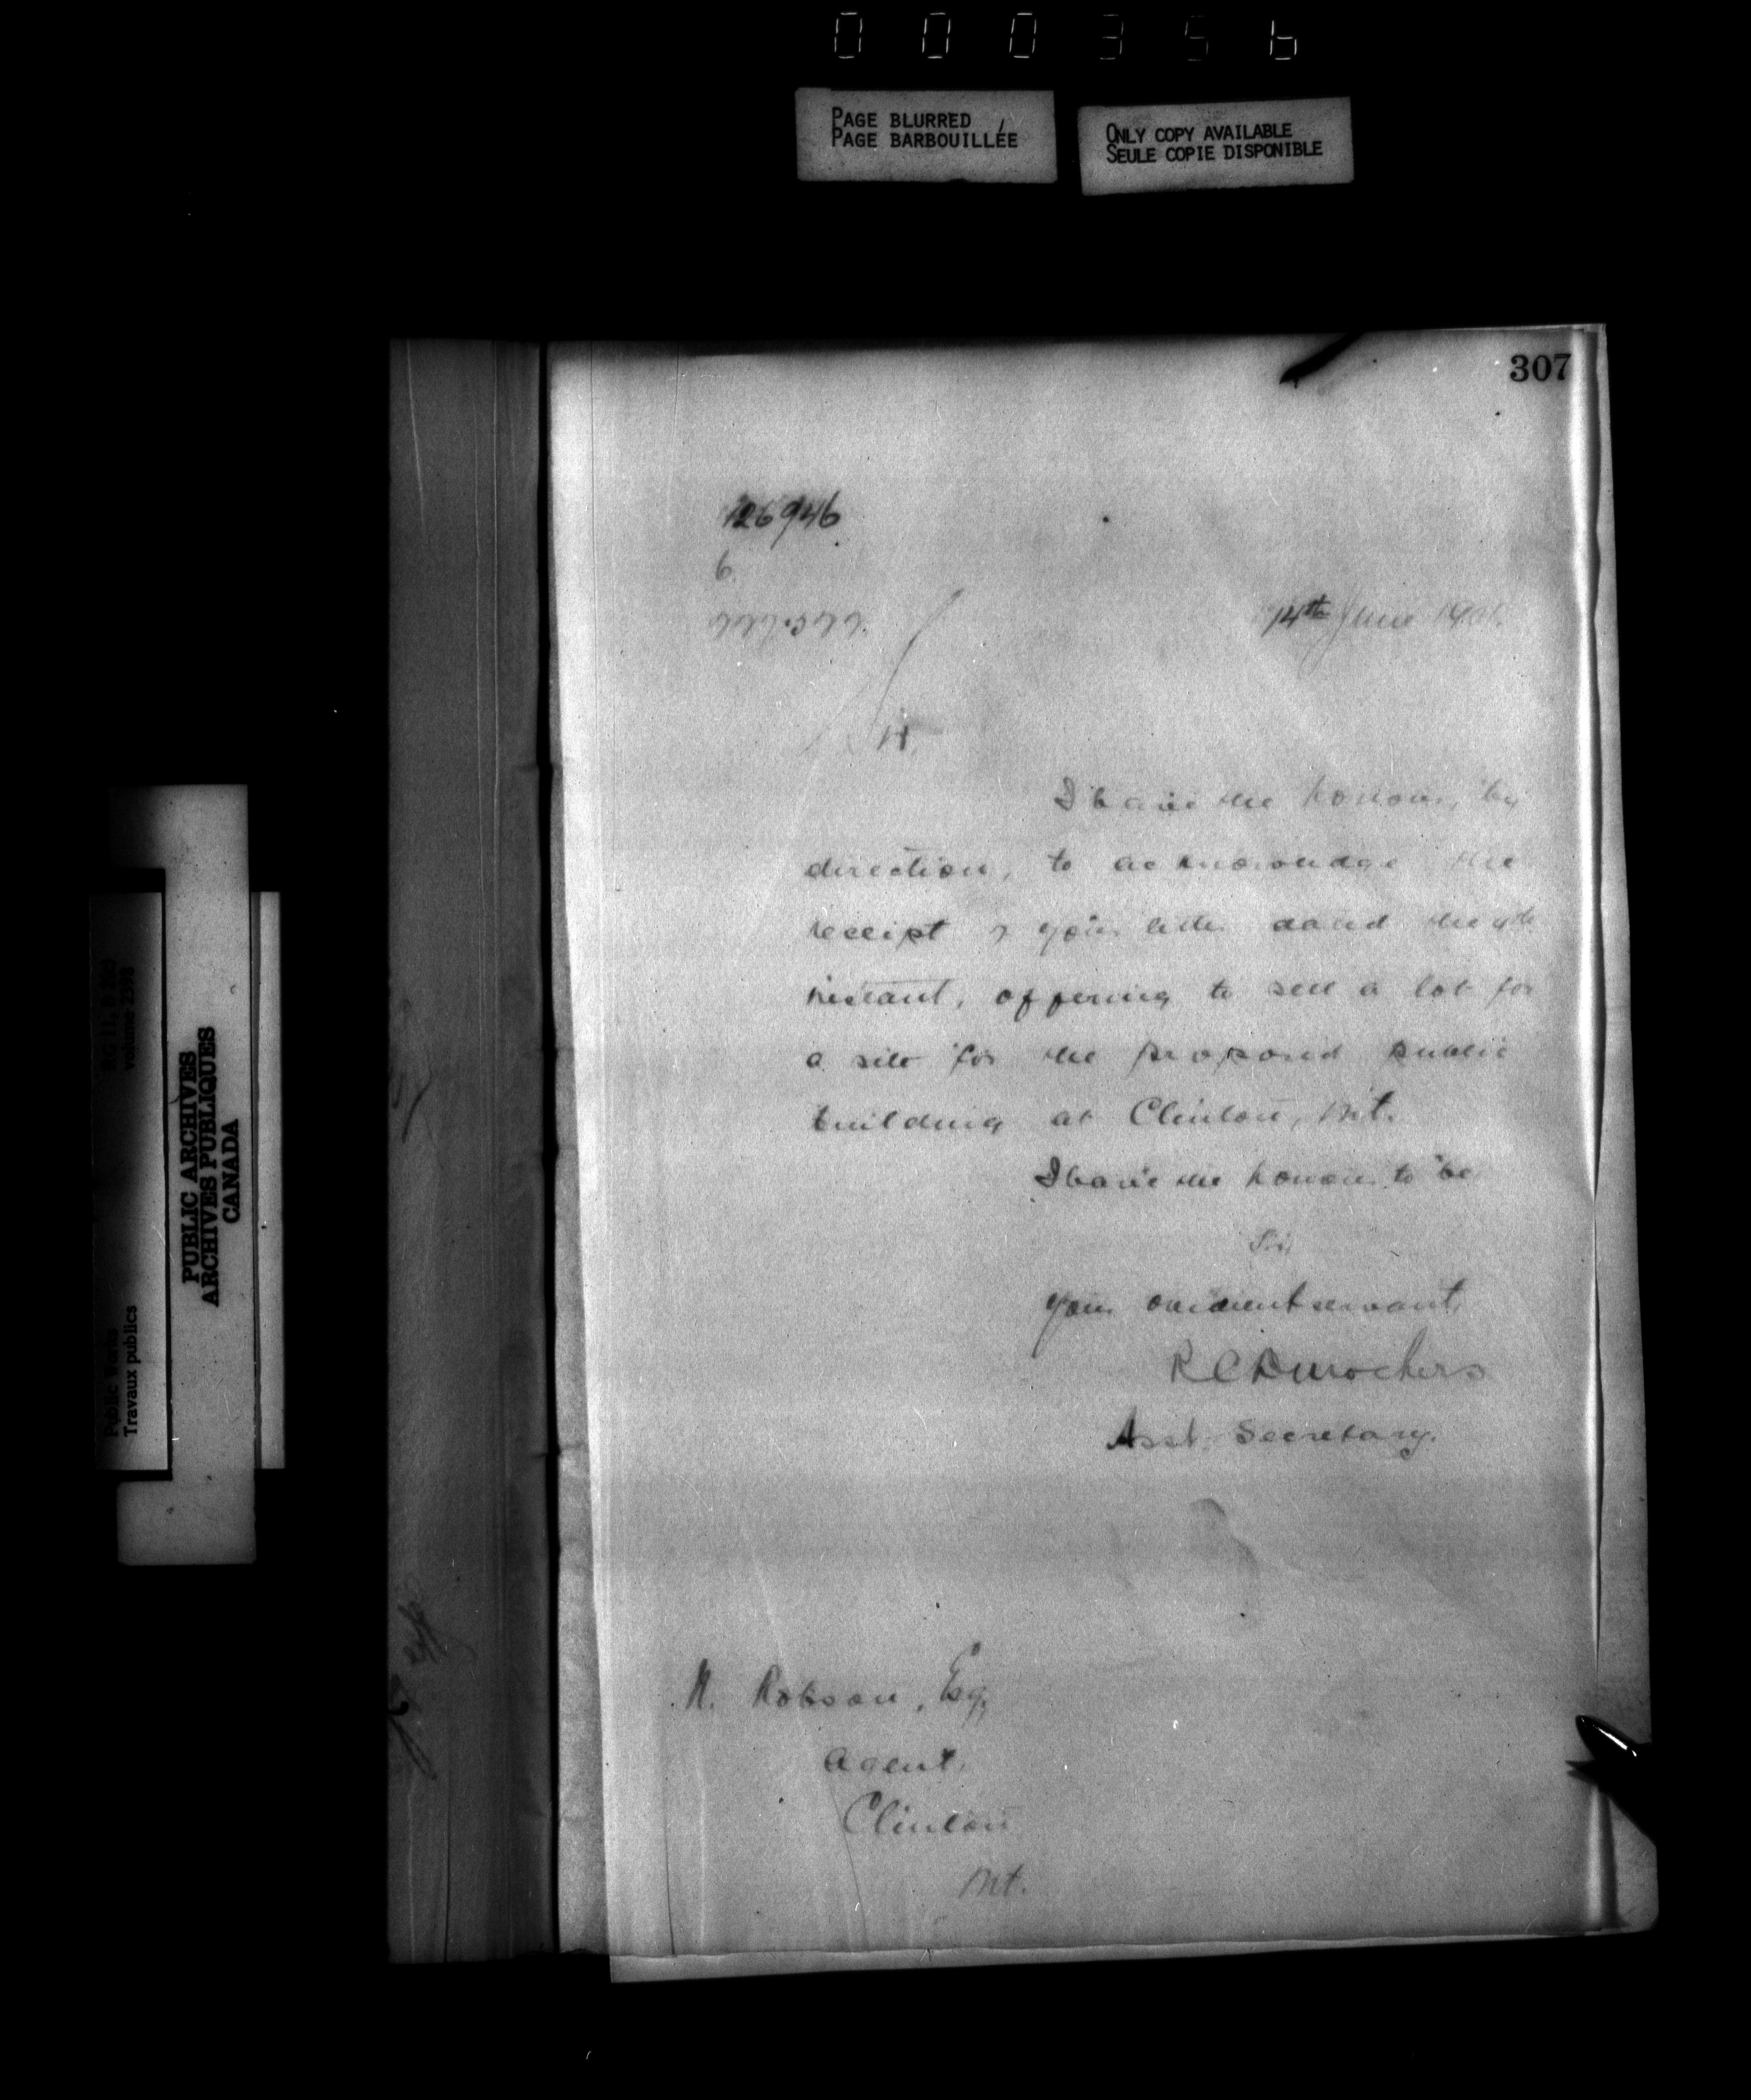 000356
PAGE BLURRED
PAGE BARBOUILLÉE
ONLY COPY AVAILABLE
SEULE COPIE DISPONIBLE
307
126946
6
14th June
I have the honour, by
direction, to acknowledge the
receipt of your letter dated the
instant, offering to sell a lot for
a site for the proposed public
building at Clinton, Ont.
I have the honour to be
Sir,
Your obedient servant,
R C Desrochers
Asst. Secretary.
Robson, Esq,
Agent,
Clinton
Ont.
RG 11, B
volume
PUBLIC ARCHIVES
ARCHIVES PUBLIQUES
CANADA
Public Works
Travaux publics